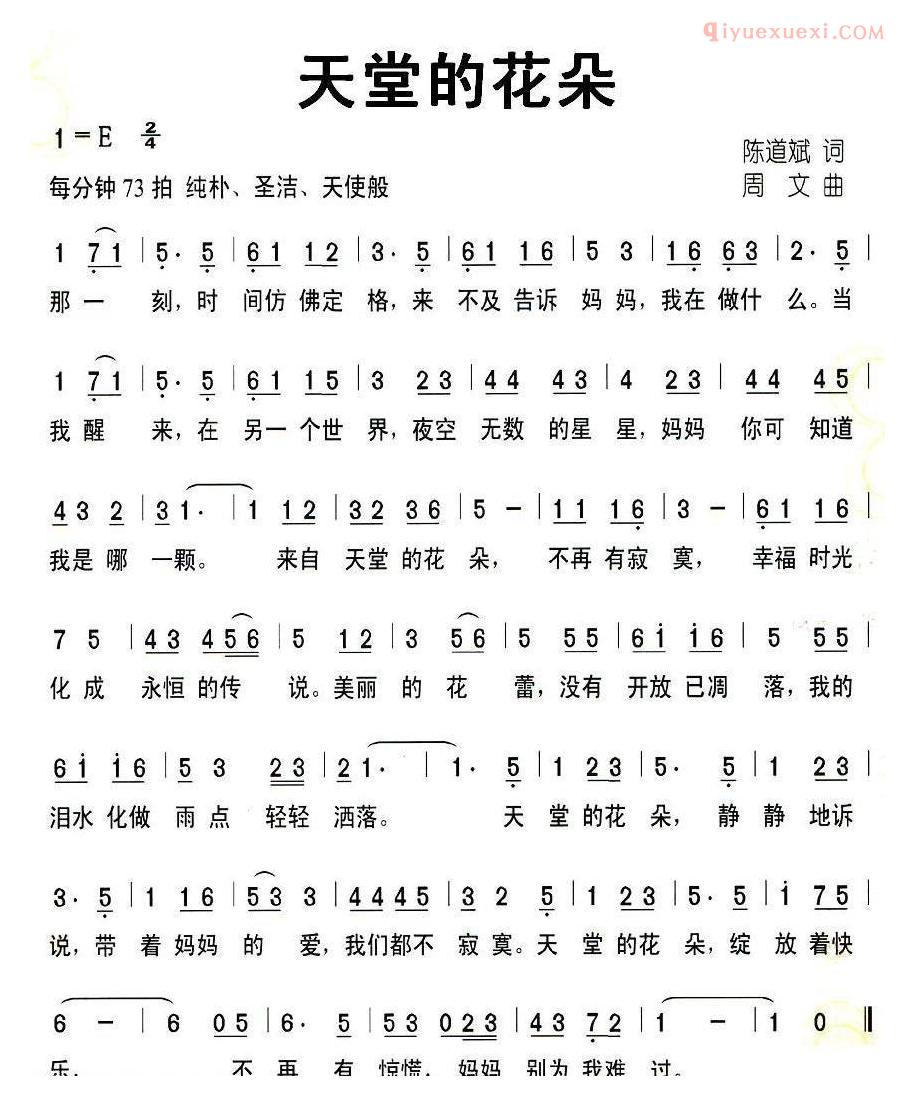 Qiyuexuexi.COM
天堂的花朵
1=E 2/4
陈道斌 词
每分钟 73 拍 纯朴、圣洁、天使般
周 文 曲
1 71 | 5· 5 | 61 12 | 3· 5 | 61 16 | 5 3 | 16 63 | 2· 5 |
那 一 刻，时 间仿 佛定 格，来 不及 告诉 妈 妈，我在 做什 么。当
1 71 | 5· 5 | 61 15 | 3 23 | 44 43 | 4 23 | 44 45 |
我 醒 来，在 另一 个世 界，夜空 无数 的星 星，妈妈 你可 知道
43 2 | 31· | 1 12 | 32 36 | 5 - | 11 16 | 3 - | 61 16 |
我是 哪 一颗。 来自 天堂 的花 朵， 不再 有寂 寞， 幸福 时光
7 5 | 43 456 | 5 12 | 3 56 | 5 55 | 6i i6 | 5 55 |
化 成 永恒 的传 说。美丽 的 花 蕾，没有 开放 已凋 落，我的
6i i6 | 5 3 23 | 21· | 1· 5 | 1 23 | 5· 5 | 1 23 |
泪水 化做 雨 点 轻轻 洒落。 天 堂 的花 朵， 静 静 地诉
3· 5 | 1 16 | 53 3 | 4445 | 3 2 5 | 1 23 | 5· 5 | i 75 |
说，带 着 妈妈 的 爱，我们都不 寂 寞。天 堂 的花 朵，绽 放 着快
6 - | 6 05 | 6· 5 | 53 023 | 43 72 | 1 - | 1 0 ‖
乐， 不 再 有 惊慌， 妈妈 别为 我难 过。